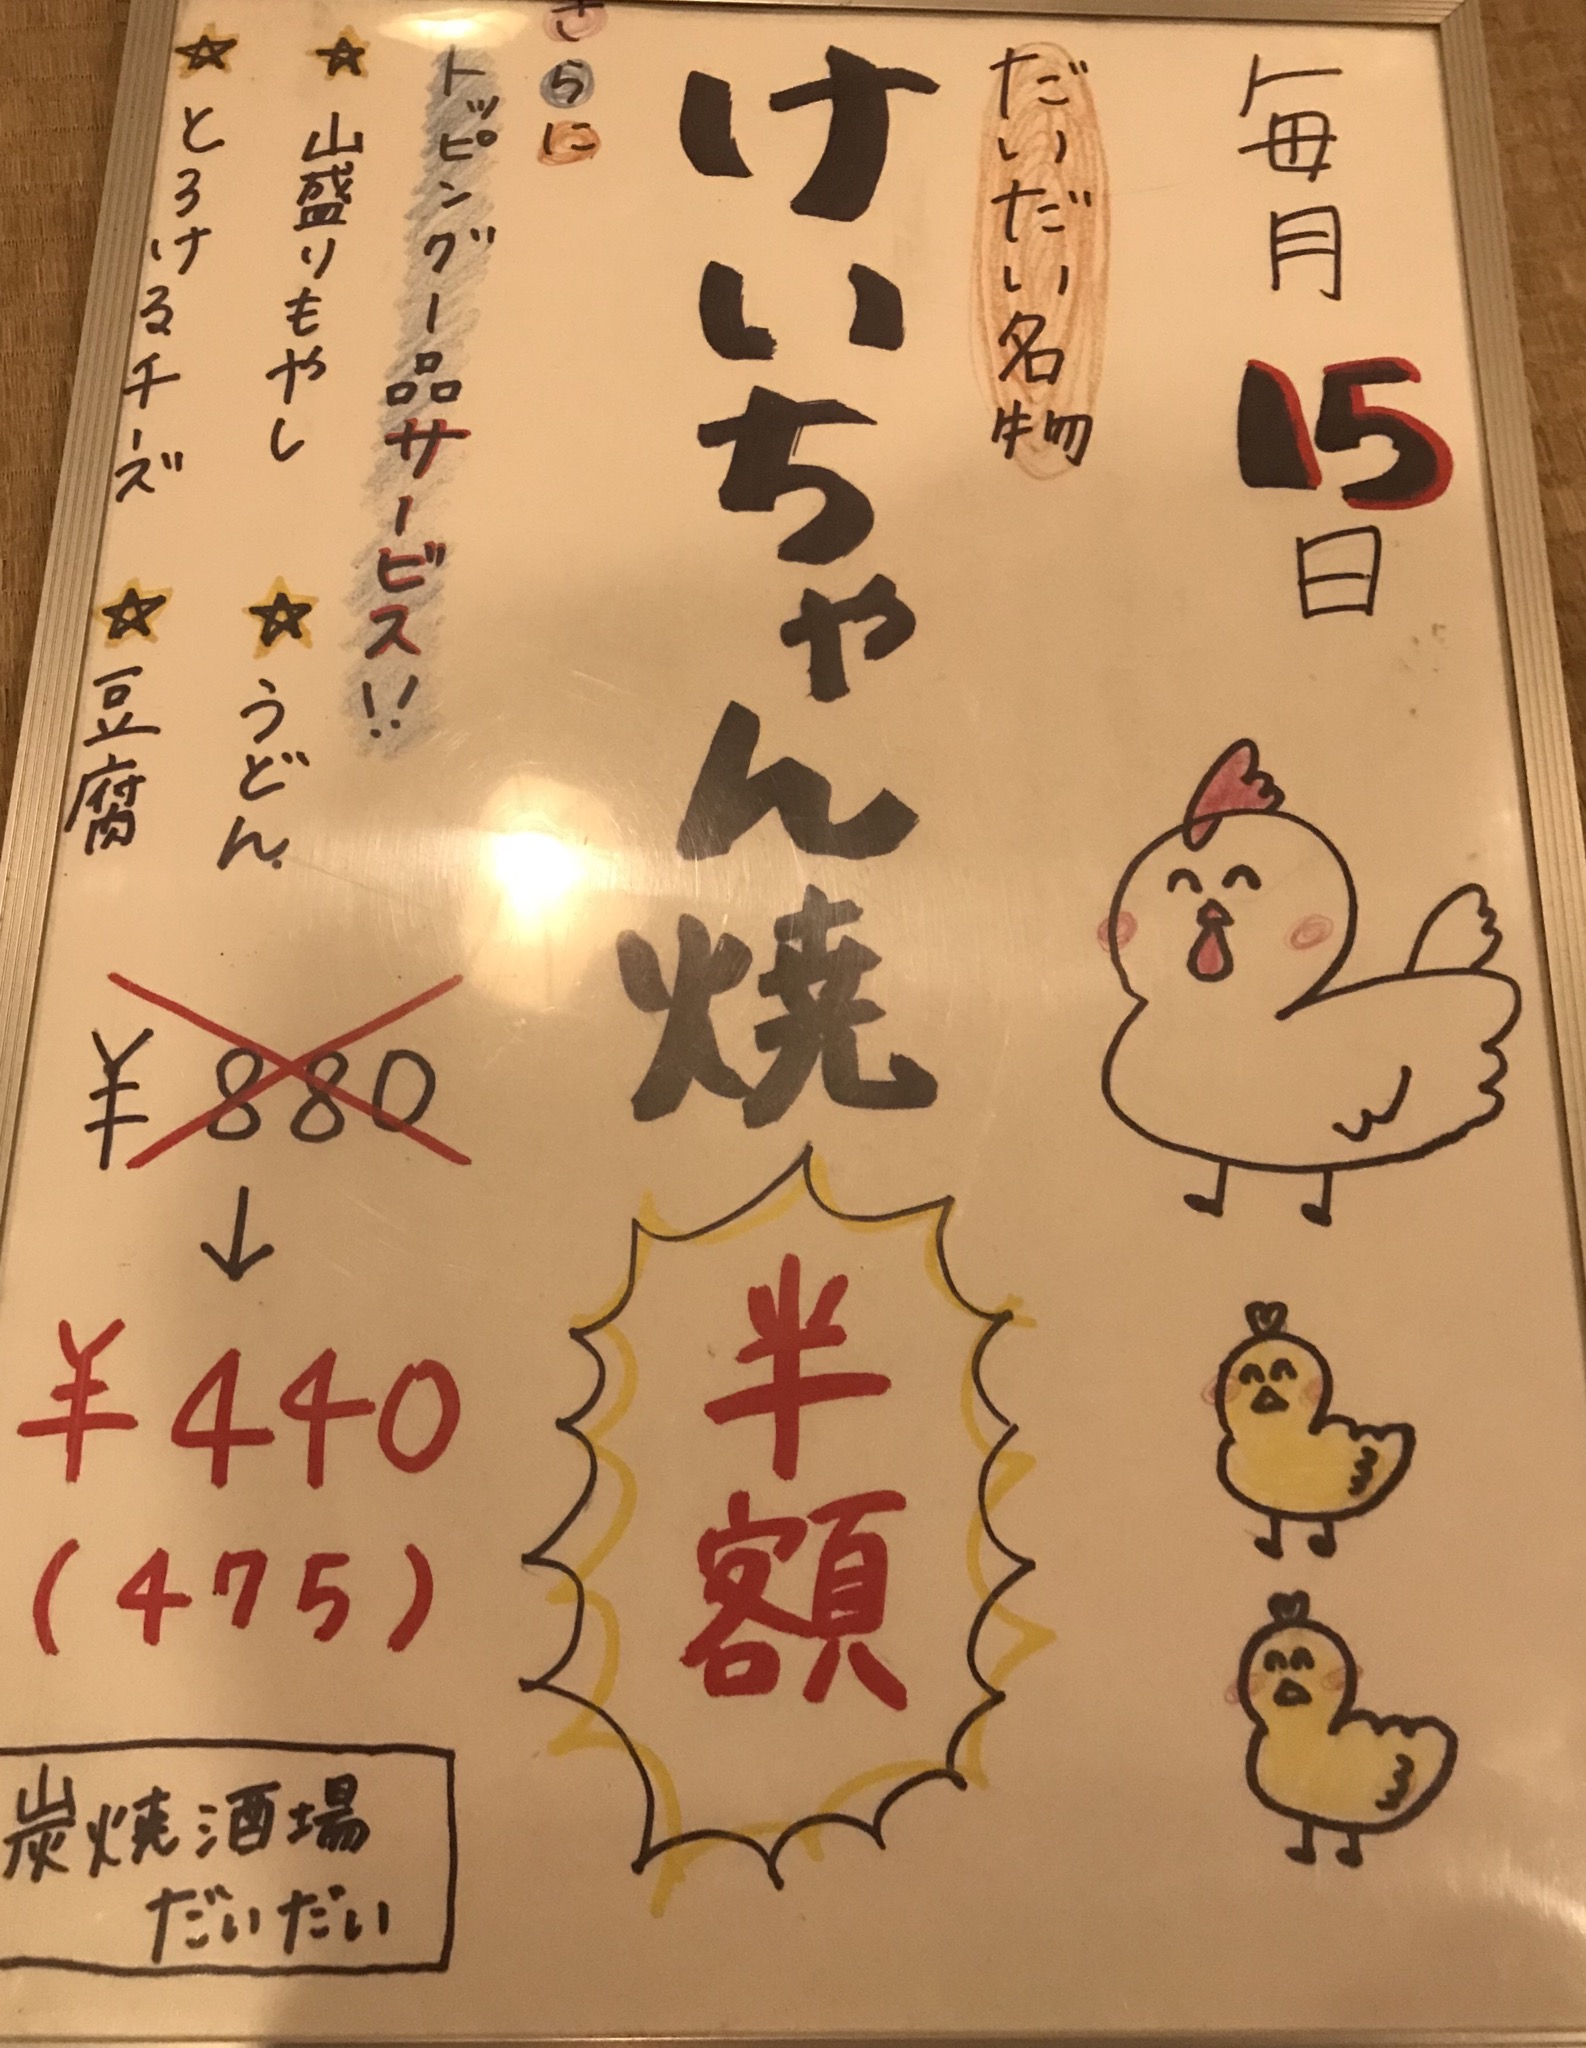 毎月15日
だいだい名物
けいちゃん焼
半額
さらに
トッピング一品サービス!!
☆山盛りもやし
☆うどん
☆とろけるチーズ
☆豆腐
¥880
↓
¥440
(475)
炭焼酒場
だいだい